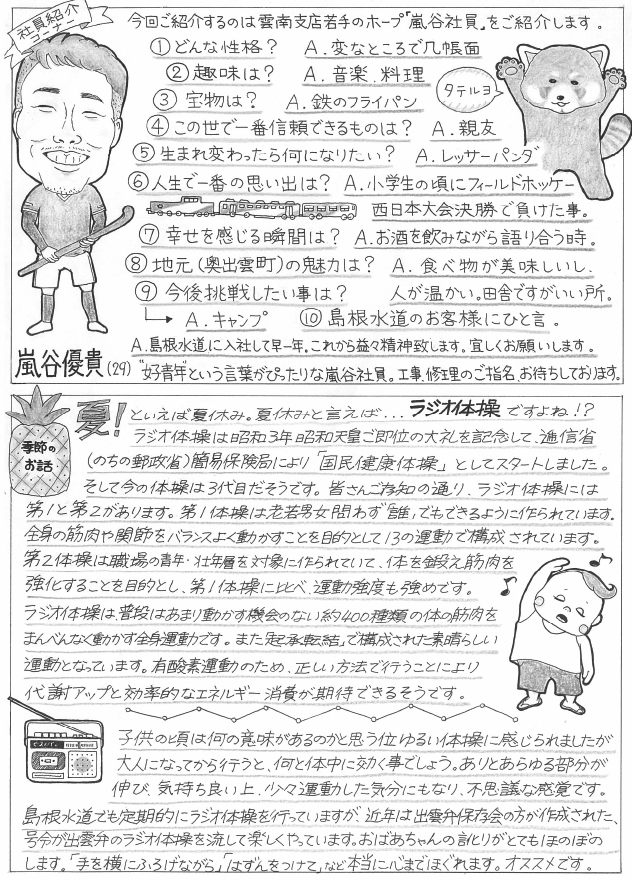 社員紹介
コーナー
今回ご紹介するのは雲南支店若手のホープ「嵐谷社員」をご紹介します。
①どんな性格？ A.変なところで几帳面
②趣味は？ A.音楽、料理
③宝物は？ A.鉄のフライパン
タテルヨ
④この世で一番信頼できるものは？ A.親友
⑤生まれ変わったら何になりたい？ A.レッサーパンダ
⑥人生で一番の思い出は？ A.小学生の頃にフィールドホッケー
西日本大会決勝で負けた事。
⑦幸せを感じる瞬間は？ A.お酒を飲みながら語り合う時。
⑧地元(奥出雲町)の魅力は？ A.食べ物が美味しいし、
⑨今後挑戦したい事は？ 人が温かい。田舎ですがいい所。
A.キャンプ ⑩島根水道のお客様にひと言。
A.島根水道に入社して早一年。これから益々精神致します。宜しくお願いします。
嵐谷優貴(29)
"好青年"という言葉がぴったりな嵐谷社員。工事、修理のご指名、お待ちしております。
季節の
お話
夏！といえば夏休み。夏休みと言えば...ラジオ体操ですよね！？
ラジオ体操は昭和3年昭和天皇ご即位の大礼を記念して、逓信省
(のちの郵政省)簡易保険局により「国民健康体操」としてスタートしました。
そして今の体操は3代目だそうです。皆さんご存知の通り、ラジオ体操には
第1と第2があります。第1体操は老若男女問わず"誰"でもできるように作られています。
全身の筋肉や関節をバランスよく動かすことを目的として13の運動で構成されています。
第2体操は職場の青年・壮年層を対象に作られていて、体を鍛え筋肉を
強化することを目的とし、第1体操に比べ、運動強度も強めです。
ラジオ体操は、普段はあまり動かす機会のない約400種類の体の筋肉を
まんべんなく動かす全身運動です。また「起承転結」で構成された素晴らしい
運動となっています。有酸素運動のため、正しい方法で行うことにより
代謝アップと効率的なエネルギー消費が期待できるそうです。
子供の頃は何の意味があるのかと思う位ゆるい体操に感じられましたが
大人になってから行うと、何と体中に効く事でしょう。ありとあらゆる部分が
伸び、気持ち良い上、少々運動した気分にもなり、不思議な感覚です。
島根水道でも定期的にラジオ体操を行っていますが、近年は出雲弁保存会の方が作成された、
号令が出雲弁のラジオ体操を流して楽しくやっています。おばあちゃんの訛りがとてもほのぼの
します。「手を横にふろげながら」「はずんをつけて」など本当に心までほぐれます。オススメです。